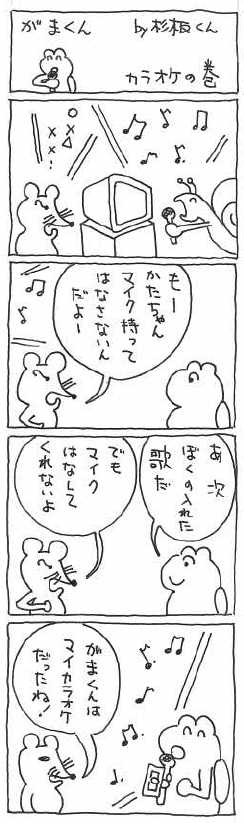 がまくん
by杉板くん
カラオケの巻
もー
かたちゃん
マイク持って
はなさないん
だよー
あ 次
ぼくの入れた
歌だ
でも
マイク
はなして
くれないよ
がまくんは
マイカラオケ
だったね!